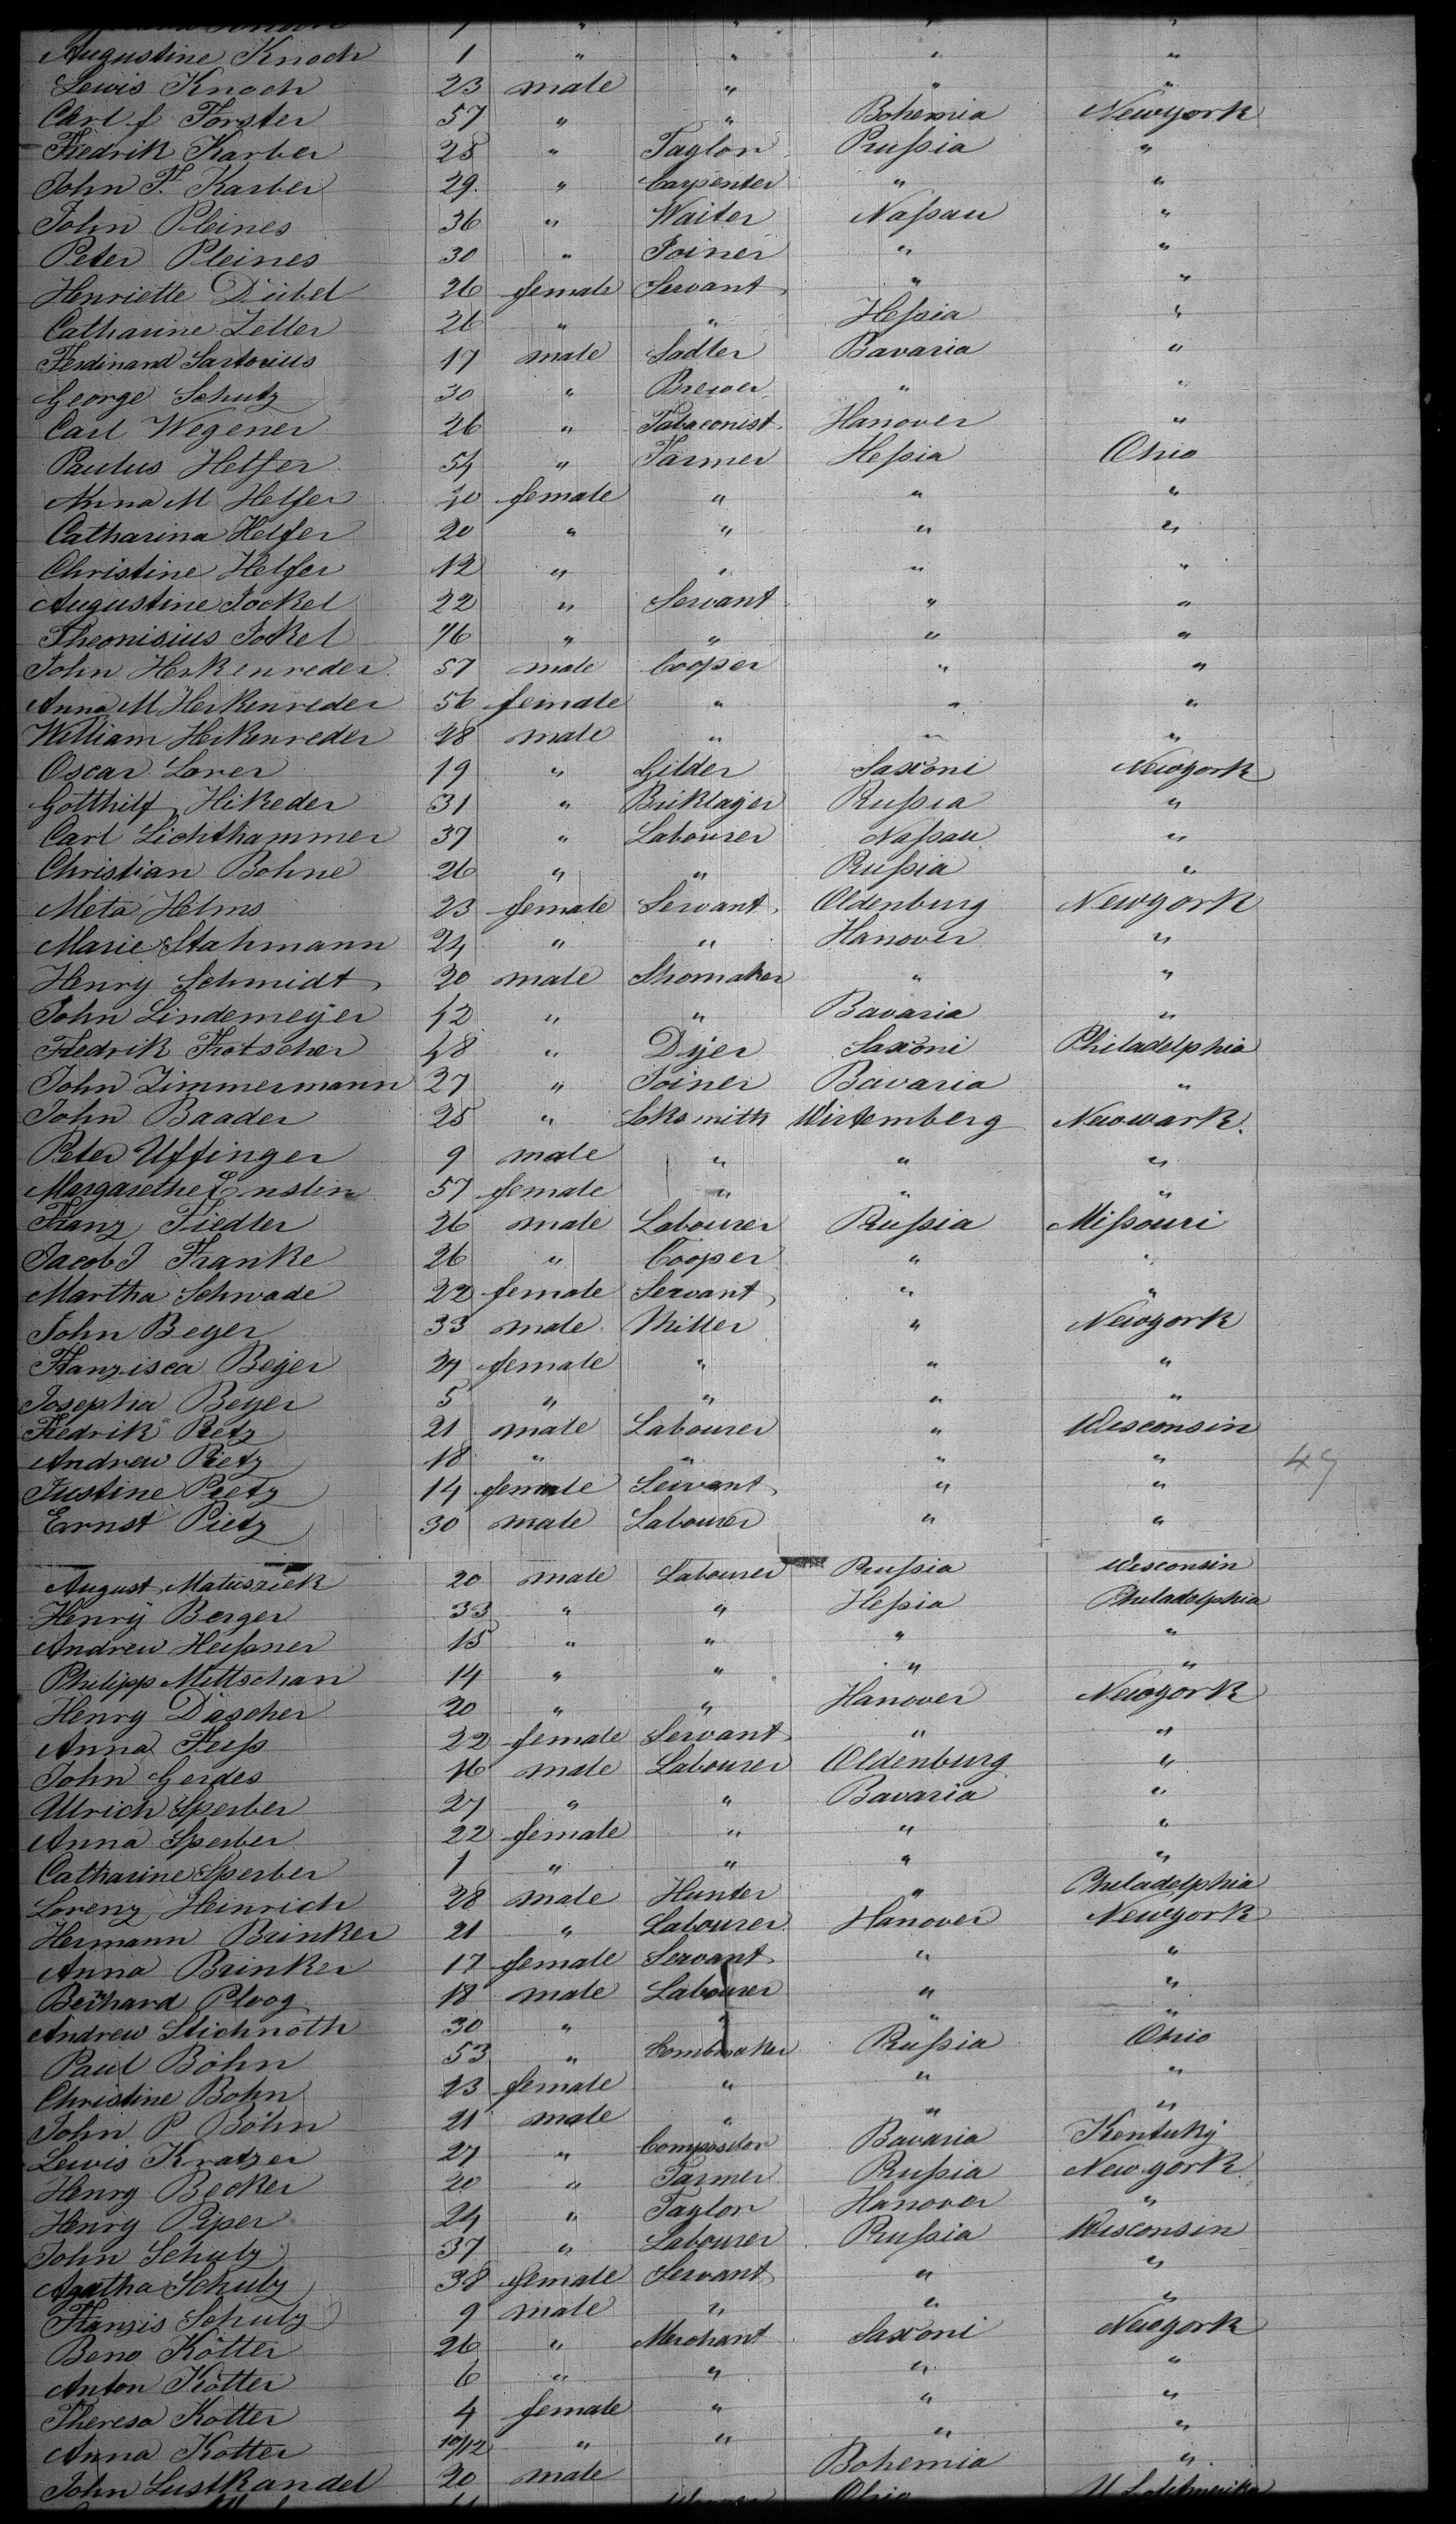 Augustine Knoch 1 " " " "
Lewis Knoch 23 male " " "
Carl f Förster 57 " " Bohemia Newyork
Fredrik Karber 28 " Taylor Prußia "
John F. Karber 29. " Carpenter " "
John Pleines 36 " Waiter Naßau "
Peter Pleines 30 " Joiner " "
Henriette Dübel 26 female Servant " "
Catharine Zeller 26 " " Heßia "
Ferdinand Sartorius 17 male Sadler Bavaria "
George Schutz 30 " Brewer " "
Carl Wegener 26 " Tabaconist Hanover "
Paulus Helfer 54 " Farmer Heßia Ohio
Anna M Helfer 40 female " " "
Catharina Helfer 20 " " " "
Christine Helfer 12 " " " "
Augustine Jockel 22 " Servant " "
Theonisius Jokel 16 " " " "
John Herkenreder 57 male Cooper " "
Anna M Herkenreder 56 female " " "
William Herkenreder 28 male " " "
Oscar Lorer 19 " Gilder Saxoni Newyork
Gotthilf Hikeder 31 " Briklayer Prußia "
Carl Lichthammer 37 " Labourer Naßau "
Christian Bohne 26 " " Prußia "
Meta Helms 23 female Servant Oldenburg Newyork
Marie Stahmann 24 " " Hanover "
Henry Schmidt 20 male Shomaker " "
John Lindemeyer 42 " " Bavaria "
Fredrik Frötscher 48 " Dyer Saxoni Philadelphia
John Zimmermann 27 " Joiner Bavaria "
John Baader 25 " Loksmith Wirtemberg Newwark.
Peter Uffinger 9 male " " "
Margarethe Enslin 57 female " " "
Franz Fiedler 26 male Labourer Prußia Mißouri
Jacob J Franke 26 " Cooper " "
Martha Schwade 22 female Servant " "
John Beyer 33 male Miller " Newyork
Franzisca Beyer 24 female " " "
Josepha Beyer 5 " " " "
Fredrik Pietz 21 male Labourer " Wisconsin
Andrew Pietz 18 " " " "
Justine Pietz 14 female Servant " "
Ernst Pietz 30 male Labourer " "
August Matusziek 20 male Labourer Prußia Wisconsin
Henry Berger 33 " " Heßia Philadelphia
Andrew Heußner 15 " " " "
Philipp Mittschan 14 " " " "
Henry Däscher 20 " " Hanover Newyork
Anna Feuß 22 female Servant " "
John Gerdes 16 male Labourer Oldenburg "
Ulrich Sperber 27 " " Bavaria "
Anna Sperber 22 female " " "
Catharine Sperber 1 " " " "
Lorenz Heinrich 28 male Hunter " Philadelphia
Hermann Brinker 21 " Labourer Hanover Newyork
Anna Brinker 17 female Servant " "
Berhard Ploog 18 male Labourer " "
Andrew Stichnoth 30 " " " "
Paul Böhn 53 " Combmaker Prußia Ohio
Christine Bohn 23 female " " "
John P Böhn 21 male " " "
Lewis Kratzer 27 " Compositor Bavaria Kentuky
Henry Becker 20 " Farmer Prußia Newyork
Henry Piper 24 " Taylor Hanover "
John Schulz 37 " Labourer Prußia Wisconsin
Agatha Schulz 38 female Servant " "
Franzis Schulz 9 male " " "
Beno Kötter 26 " Merchant Saxoni Newyork
Anton Kötter 6 " " " "
Theresa Kotter 4 female " " "
Anna Kotter 10/12 " " " "
John Lustkandel 20 male Bohemia "
Ohio